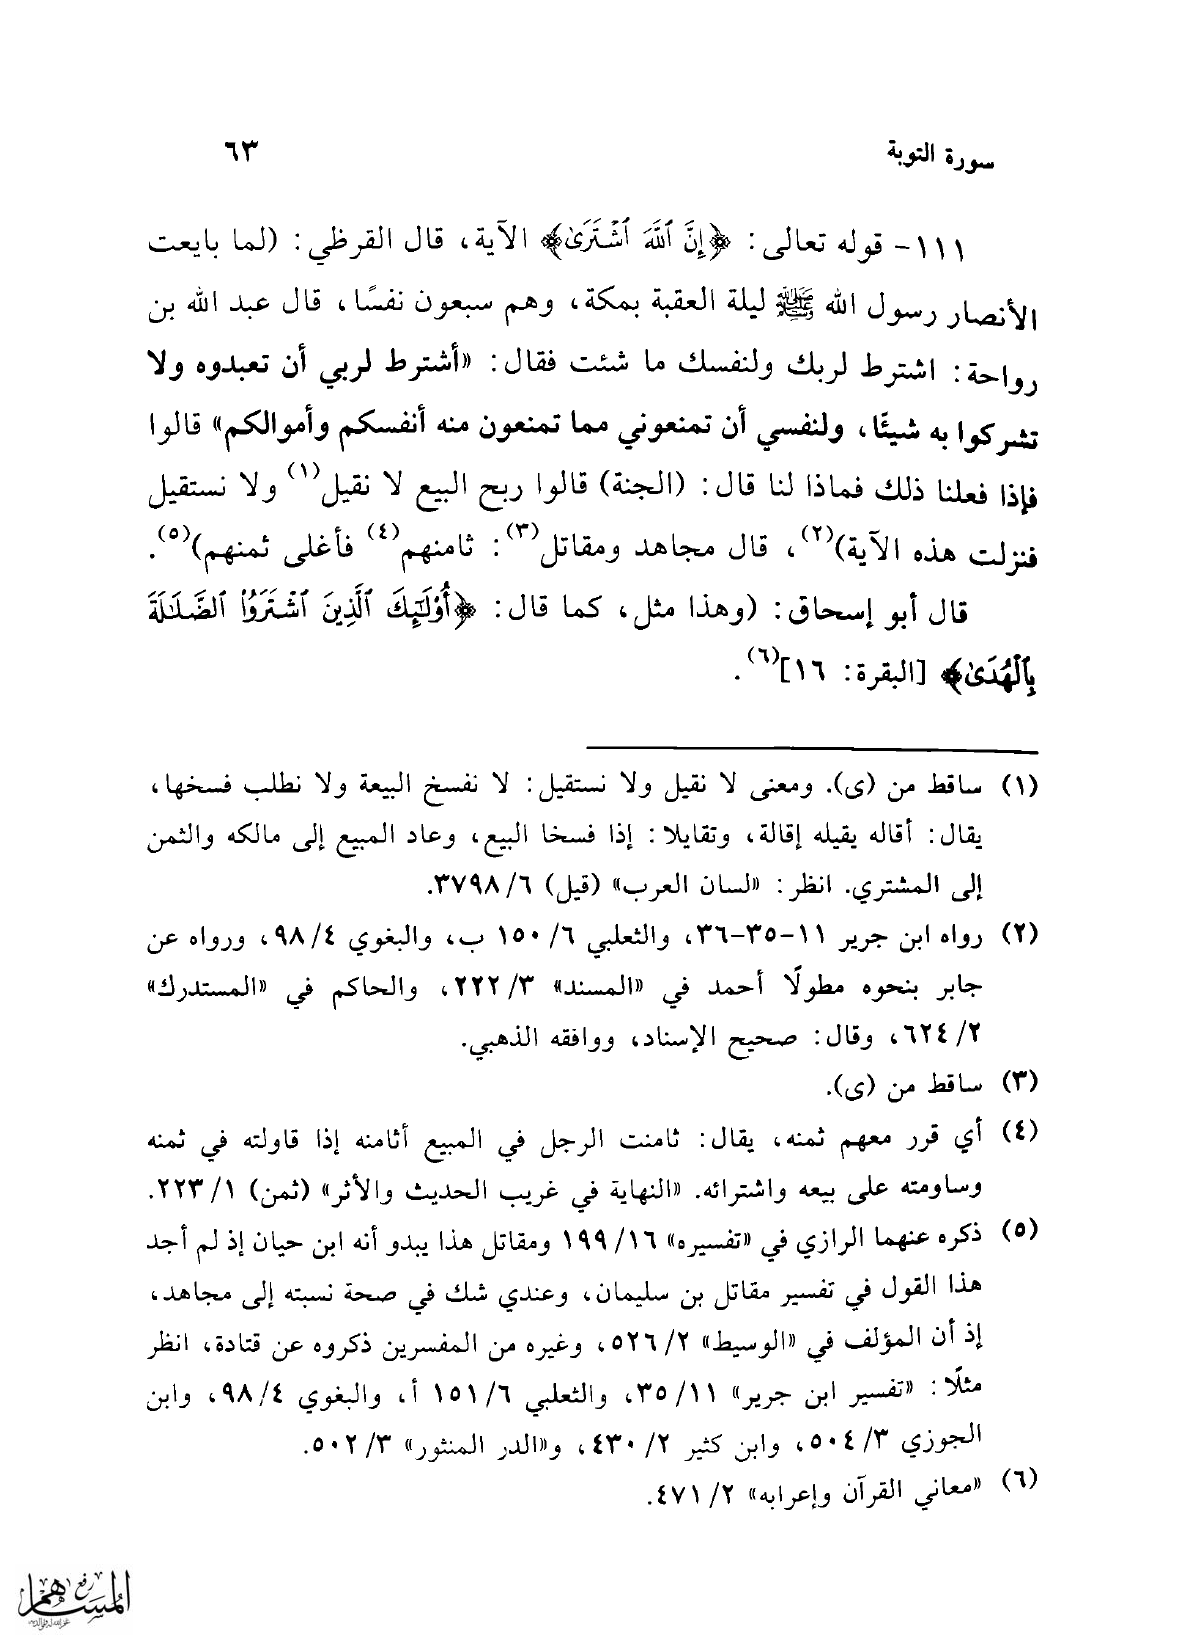 سورة التوبة ٦٣
١١١- قوله تعالى: ﴿إِنَّ ٱللَّهَ ٱشْتَرَىٰ﴾ الآية، قال القرظي: (لما بايعت
الأنصار رسول الله ﷺ ليلة العقبة بمكة، وهم سبعون نفسًا، قال عبد الله بن
رواحة: اشترط لربك ولنفسك ما شئت فقال: «أشترط لربي أن تعبدوه ولا
تشركوا به شيئًا، ولنفسي أن تمنعوني مما تمنعون منه أنفسكم وأموالكم» قالوا
فإذا فعلنا ذلك فماذا لنا قال: (الجنة) قالوا ربح البيع لا نقيل(١) ولا نستقيل
فنزلت هذه الآية)(٢)، قال مجاهد ومقاتل(٣): ثامنهم(٤) فأغلى ثمنهم)(٥).
قال أبو إسحاق: (وهذا مثل، كما قال: ﴿أُوْلَـٰٓئِكَ ٱلَّذِينَ ٱشْتَرَوُاْ ٱلضَّلَـٰلَةَ
بِٱلْهُدَىٰ﴾ [البقرة: ١٦](٦).
(١) ساقط من (ى). ومعنى لا نقيل ولا نستقيل: لا نفسخ البيعة ولا نطلب فسخها،
يقال: أقاله يقيله إقالة، وتقايلا: إذا فسخا البيع، وعاد المبيع إلى مالكه والثمن
إلى المشتري. انظر: «لسان العرب» (قيل) ٦/ ٣٧٩٨.
(٢) رواه ابن جرير ١١-٣٥-٣٦، والثعلبي ٦/ ١٥٠ ب، والبغوي ٤/ ٩٨، ورواه عن
جابر بنحوه مطولًا أحمد في «المسند» ٣/ ٢٢٢، والحاكم في «المستدرك»
٢/ ٦٢٤، وقال: صحيح الإسناد، ووافقه الذهبي.
(٣) ساقط من (ى).
(٤) أي قرر معهم ثمنه، يقال: ثامنت الرجل في المبيع أثامنه إذا قاولته في ثمنه
وساومته على بيعه واشترائه. «النهاية في غريب الحديث والأثر» (ثمن) ١/ ٢٢٣.
(٥) ذكره عنهما الرازي في «تفسيره» ١٦/ ١٩٩ ومقاتل هذا يبدو أنه ابن حيان إذ لم أجد
هذا القول في تفسير مقاتل بن سليمان، وعندي شك في صحة نسبته إلى مجاهد،
إذ أن المؤلف في «الوسيط» ٢/ ٥٢٦، وغيره من المفسرين ذكروه عن قتادة، انظر
مثلًا: «تفسير ابن جرير» ١١/ ٣٥، والثعلبي ٦/ ١٥١ أ، والبغوي ٤/ ٩٨، وابن
الجوزي ٣/ ٥٠٤، وابن كثير ٢/ ٤٣٠، و«الدر المنثور» ٣/ ٥٠٢.
(٦) «معاني القرآن وإعرابه» ٢/ ٤٧١.